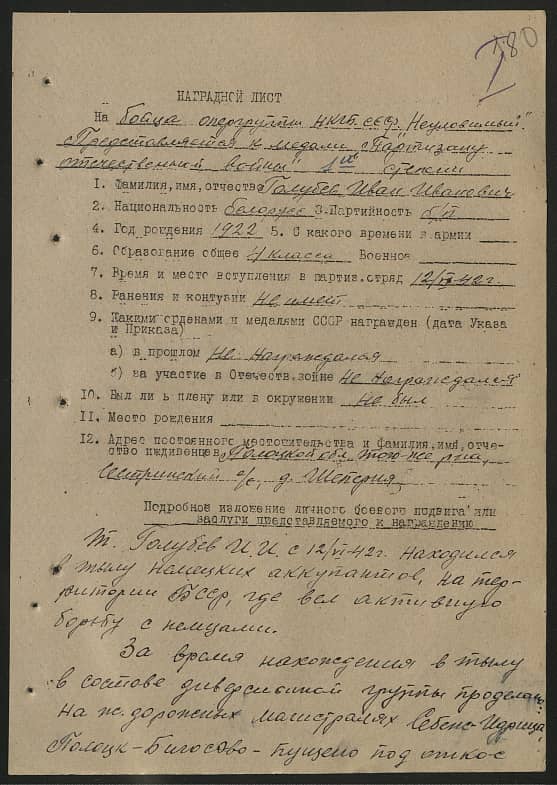 180
НАГРАДНОЙ ЛИСТ
На бойца опергруппы НКГБ СССР "Неуловимый"
Представляется к медали "Партизану
отечественной войны" 1ой степени
1. Фамилия,имя,отчество Голубев Иван Иванович
2. Национальность белорус 3.Партийность б/п
4. Год рождения 1922 5. С какого времени в армии
6. Образование общее 4 класса Военное
7. Время и место вступления в партиз.отряд 12/VI-42г.
8. Ранения и контузии не имеет
9. Какими орденами и медалями СССР награжден (дата Указа
и Приказа)
а) в прошлом не награждался
б) за участие в Отечеств.войне не награждался
10. Был ли в плену или в окружении не был
11. Место рождения
12. Адрес постоянного местожительства и фамилия,имя,отче-
ство иждивенцев Полоцкой обл. того-же р-на,
Сестринский с/с, д. Шатерня
Подробное изложение личного боевого подвига или
заслуги представляемого к награждению
Т. Голубев И.И. с 12/VI-42г. находился
в тылу немецких аккупантов, на тер-
ритории БССР, где вел активную
борьбу с немцами.
За время нахождения в тылу
в составе диверсионной группы проделано:
На ж.дорожных магистралях Себеж-Идрица,
Полоцк-Бигосово - пущено под откос